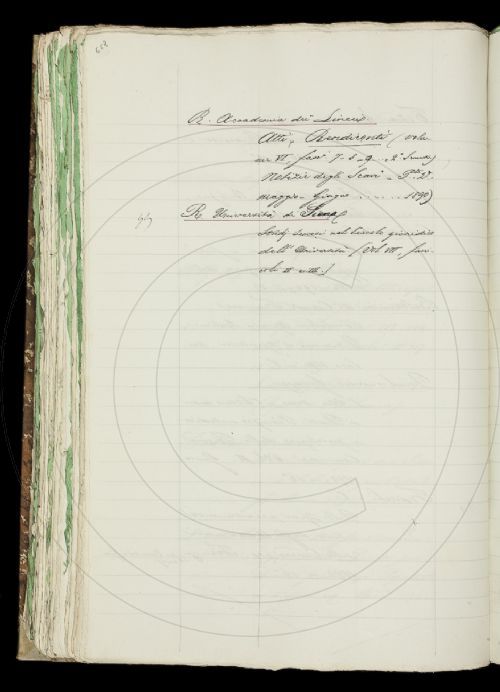 R. Accademia dei Lincei
Atti, Rendiconti (volu
me VI, fasc. 7-8-9... 2° Sem.)
Notizie degli Scavi -
maggio - Giugno ........ 1890)
R. Università di Siena
Studj Senesi nel Circolo giuridico
dell'Università (Vol. VII, fasci
coli II e III.)